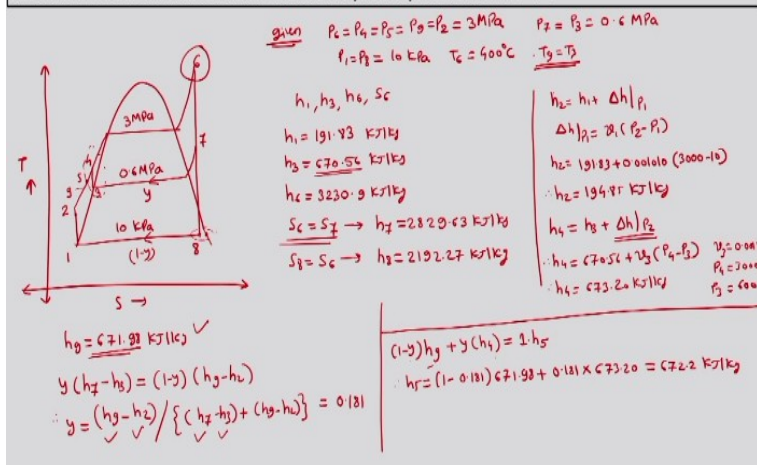 given P₆=P₄=P₅=P₉=P₂=3MPa P₇=P₃=0.6 MPa
P₁=P₈=10 kPa T₆=400°C T₉=T₃
h₁, h₃, h₆, S₆
h₁=191.83 KJ/kg
h₃=670.56 KJ/kg
h₆=3230.9 KJ/kg
S₆=S₇ → h₇=2829.63 KJ/kg
S₈=S₆ → h₈=2192.27 KJ/kg
h₂=h₁+Δh|P₁
Δh|P₁=v₁(P₂-P₁)
h₂=191.83+0.001010(3000-10)
∴h₂=194.85 KJ/kg
h₄=h₃+Δh|P₂
∴h₄=670.56+v₃(P₄-P₃)
∴h₄=673.20 KJ/kg
P₄=3000
P₃=600
T ↑
6
3MPa
4
5
7
9
3
0.6MPa
y
2
10 kPa
1
(1-y)
8
S →
h₉=671.98 KJ/kg ✓
y(h₇-h₃)=(1-y)(h₉-h₂)
∴y=(h₉-h₂)/{(h₇-h₃)+(h₉-h₂)}=0.181
(1-y)h₉+y(h₄)=1.h₅
∴h₅=(1-0.181)671.98+0.181×673.20=672.2 KJ/kg